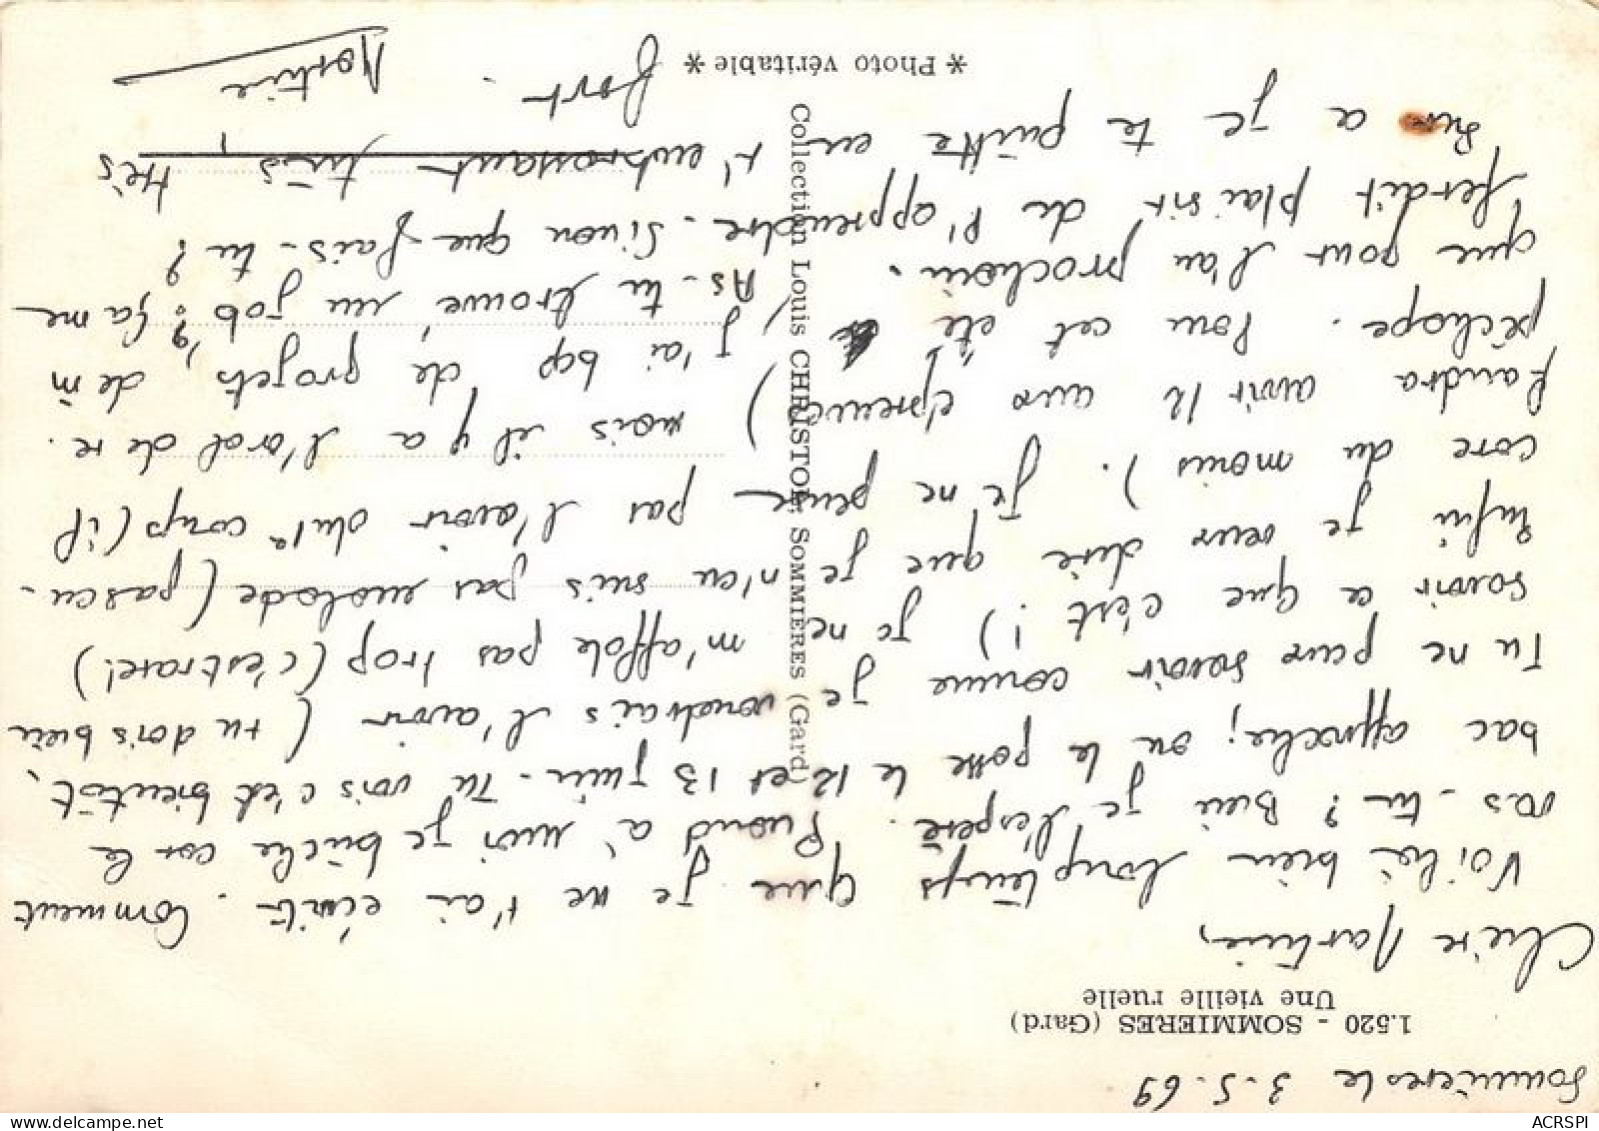 Sommières le 3-5-69
1.520 - SOMMIERES (Gard)
Une vieille ruelle
Chère Martine,
Voilà bien longtemps que je ne t'ai écrit. Comment
vas-tu? Bien je l'espère. Quand à moi je bûche car le
bac approche; on le passe le 12 et 13 juin. Tu vois c'est bientôt.
Tu ne peux savoir comme je voudrais l'avoir (tu dois bien
savoir ce que c'est!) je ne m'affole pas trop (c'est rare!)
Enfin je veux dire que je n'en suis pas malade (pas en-
core du moins). Je ne pense pas l'avoir du 1er coup (il
faudra avoir 12 aux épreuves) mais il y a l'oral de re.
pêchage. Pour cet été j'ai bcp de projets, de m̂
que pour l'an prochain. As-tu trouvé un job? Ça me
ferait plaisir de l'apprendre. Sinon que fais-tu?
Sur ce je te quitte en t'embrassant très, très
fort.
Martine
* Photo véritable *
Collection Louis CHRISTOL, SOMMIÈRES (Gard)
ACRSPI